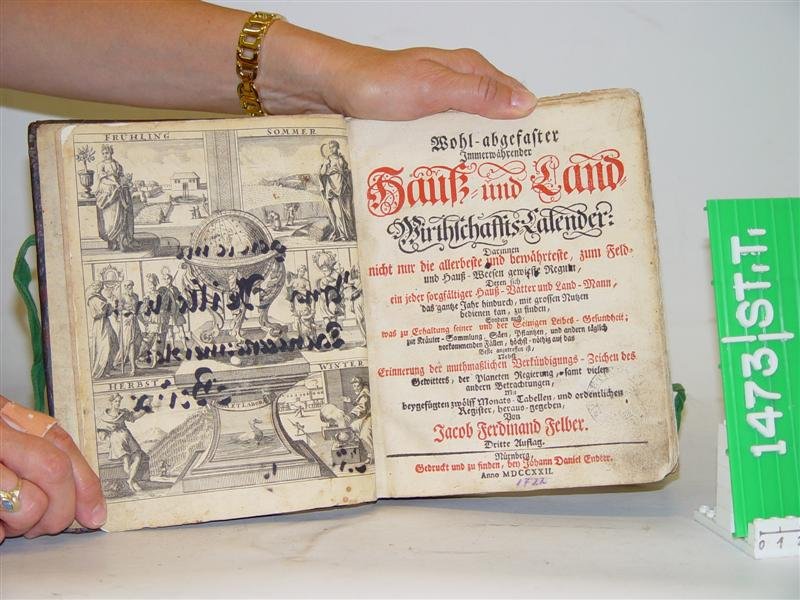 FRÜHLING
SOMMER
HERBST
WINTER
ET LABORE
Wohl-abgefaster
Immerwährender
Hauß- und Land-
Wirthschaffts-Calender:
Darinnen
nicht nur die allerbeste und bewährteste, zum Feld-
und Hauß-Wesen gewisse Reguln,
Deren sich
ein jeder sorgfältiger Hauß-Vatter und Land-Mann,
das gantze Jahr hindurch, mit grossen Nutzen
bedienen kan, zu finden,
Sondern auch:
was zu Erhaltung seiner und der Seinigen Leibes-Gesundheit;
zur Kräuter-Sammlung, Säen, Pflantzen, und andern täglich
vorkommenden Fällen, höchst-nöthig auf das
Beste anzutreffen ist,
Nebst
Erinnerung der muthmaßlichen Verkündigungs-Zeichen des
Gewitters, der Planeten Regierung, samt vielen
andern Betrachtungen,
Mit
beygefügten zwölff Monats-Tabellen, und ordentlichen
Register, heraus-gegeben,
Von
Jacob Ferdinand Felber.
Dritte Auflag.
Nürnberg,
Gedruckt und zu finden, bey Johann Daniel Endter.
Anno MDCCXXII.
1722
1473 ST.T.
0 1 2